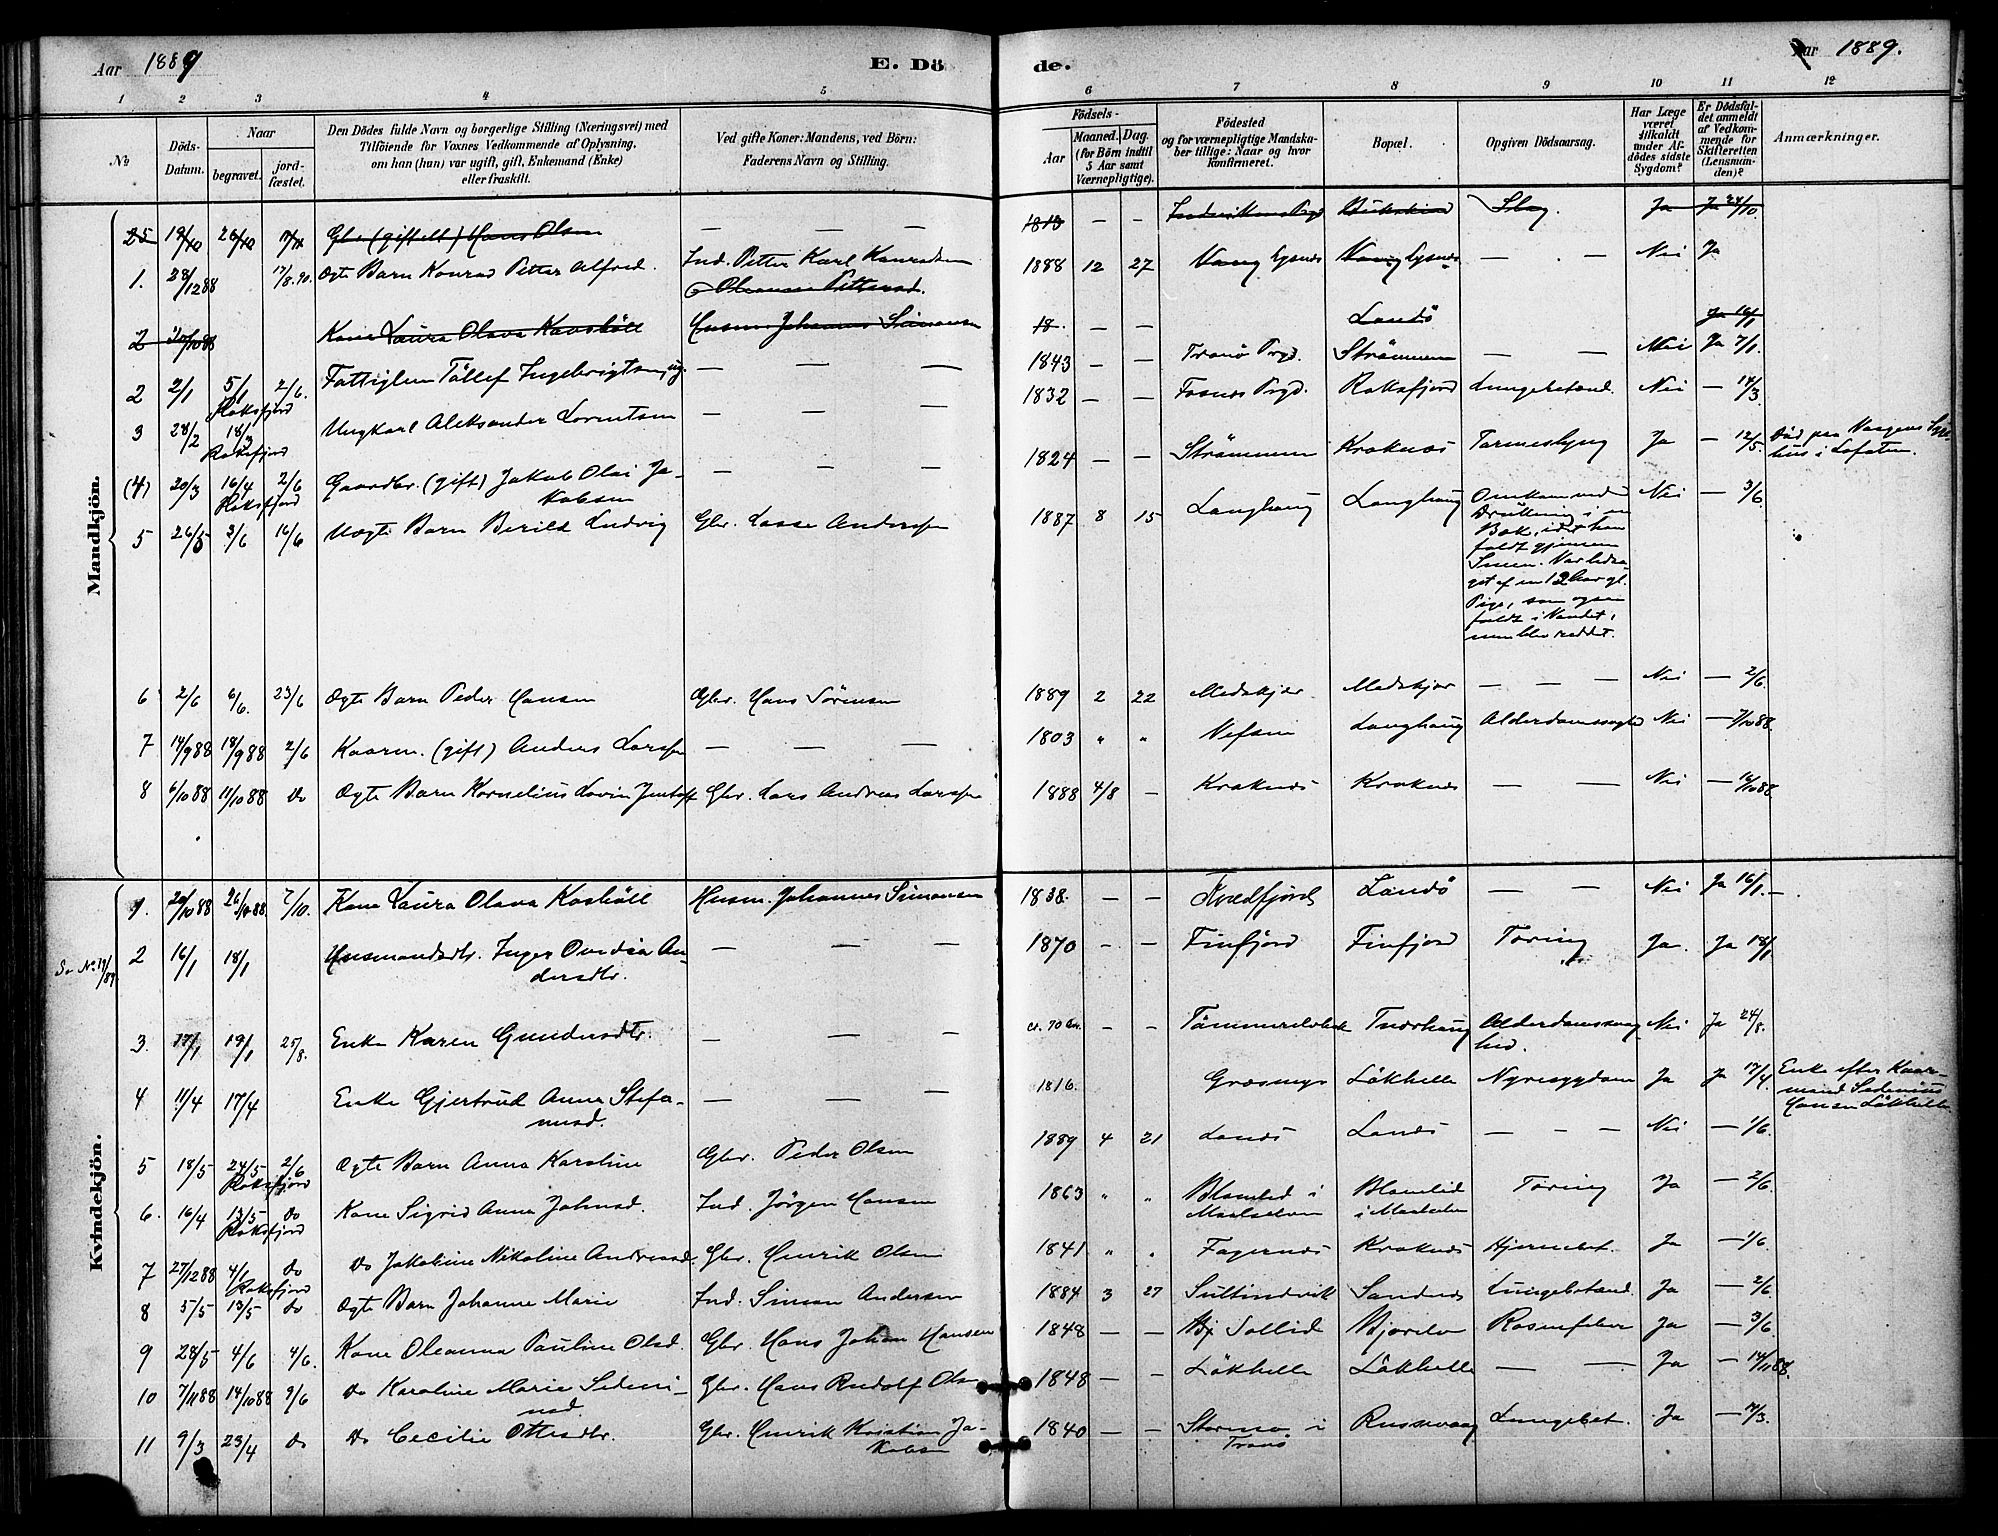 Aar 1889
E. Döde.
Aar 1889.
1 2 3 4 5 6 7 8 9 10 11 12
No
Döds-Datum.
Naar
begravet.
jord-fæstet.
Den Dödes fulde Navn og borgerlige Stilling (Næringsvei) med
Tilföiende for Voxnes Vedkommende af Oplysning,
om han (hun) var ugift, gift, Enkemand (Enke)
eller fraskilt.
Ved gifte Koner: Mandens, ved Börn:
Faderens Navn og Stilling.
Födsels-
Aar
Maaned. Dag.
(for Börn indtil
5 Aar samt
Værnepligtige).
Födested
og for værnepligtige Mandska-
ber tillige: Naar og hvor
konfirmeret.
Bopæl.
Opgiven Dödsaarsag.
Har Læge
været
tilkaldt
under Af-
dödes sidste
Sygdom?
Er Dödsfal-
det anmeldt
af Vedkom-
mende for
Skifteretten
(Lensman-
den)?
Anmærkninger.
Mandkjön.
25 19/10 26/10 Gbr (gift) Hans Olsen — — — 1813 — — Ja Ja 28/10.
1. 28/12 88 17/8.90. Ægte Barn Konrad Petter Alfred. Ind. Petter Karl Konradsen 1888 12 27 Vang Lysnes Vang Lysnes — — Nei Ja
Oleanna Pettersd.
2 Kone Laura Olava Kavsböll Husm. Johannes Simonsen 18. — — Landö Ja 16/1
2 2/1 5/1 2/6. Fattiglem Töllef Ingebrigtsen ug. — — — 1843 — — Tranö Prgd. Strömmen — — Nei Ja 7/1.
Roksfjord
3 28/2 18/3 Ungkarl Aleksander Lorentsen — — — 1832 — — Fosnes Prgd. Roksfjord Lungebetænd. Nei — 14/3
Roksfjord
(4) 20/3 16/4 2/6 Gaardbr. (gift) Jakob Olai Ja-
kobsen — — — 1824 — — Strömmen Kraknes Tarmeslyng Ja — 12/5. Död paa Vaagens Syge
hus i Lofoten.
Roksfjord
5 26/5 3/6 16/6 Uægte Barn Berild Ludvig Gbr. Lasse Andersen 1887 8 15 Langhaug Langhaug Omkom ved Nei — 3/6
Drukning i en
Bæk, idet han
faldt gjennem
Sneen. Var ledsa-
get af en 12 Aar gl.
Pige, som ogsaa
faldt i Vandet,
men blev reddet.
6 2/6 6/6. 23/6 Ægte Barn Peder Hansen Gbr. Hans Sörensen 1889 2 22 Medskjær Medskjær — — — Nei — 2/6.
7 14/9 88 18/9 88 2/6 Kaarm. (gift) Anders Larssen — — — 1803 " " Vefsen Langhaug Alderdomssvaghed Nei — 7/10 88.
8 6/10 88 11/10 88 Do Ægte Barn Kornelius Lovin Jentoft Gbr. Lars Andreas Larssen 1888 4/8 — Kraknes Kraknes — — Nei — 16/10 88.
Kvindekjön.
1. 20/10 88 26/10 88 7/10. Kone Laura Olava Kasböll Husm. Johannes Simonsen 1838. — — Kvedfjord Landö — — Nei Ja 16/1. —
2 16/1 18/1 Husmandsdtr. Inger Ovedia An-
dersdtr. — — — 1870 — — Finfjord Finfjord Tæring Ja. Ja 18/1
Se No 19/89
3. 17/1 19/1 25/8. Enke Karen Gundersdtr. — — — ca. 70 Aar. — — Alderdomssvag
hed. Nei Ja 24/8.
4 11/4 17/4 Enke Gjertrud Anna Stefa-
nusd. — — — 1816. Græsmyr Lökhelle Nyresygdom Ja Ja 17/4. Enke efter Kaar-
mand Sedenius
Hansen Lökhelle
5 18/5 24/5 2/6 Ægte Barn Anna Karoline Gbr. Peder Olsen 1889 4 21 Landö Landö — — — Nei — 1/6.
Roksfjord
6. 16/4 13/5 Do Kone Sigrid Anna Johnsd. Ind. Jörgen Hansen 1863 " " Blomlid i
Maalselven Blomlid
i Maalselven Tæring Ja — 2/6.
Roksfjord
7 27/12 88 4/1 Do Do Jakobine Nikoline Andreasd. Gbr. Henrik Olsen 1841 " " Fagernes Kraknes Hjernebet. Ja — 1/6.
Roksfjord
8 5/5 13/5 Do Ægte Barn Johanne Marie Ind. Simon Andersen 1884 3 27 Sultindvik Sandnes Lungebetænd. Ja — 2/6
9 28/5 4/6 4/6. Kone Oleanna Pauline Olsd. Gbr. Hans Johan Hansen 1848 — — Sollid Bjorelv Rosenfeber Ja — 3/6
10 7/11 88 14/10 88 9/6 Do Karoline Marie Sedeni-
usd. Gbr. Hans Rudolf Olsen 1848 — — Lökhelle Lökhelle — — Ja — 14/11 88.
11 9/3 23/4 Do Do Cecilie Ottesdtr. Gbr. Henrik Kristian Ja-
kobsen 1840 — — Stormo i
Tranö Russevaag Lungebet. Ja — 7/3